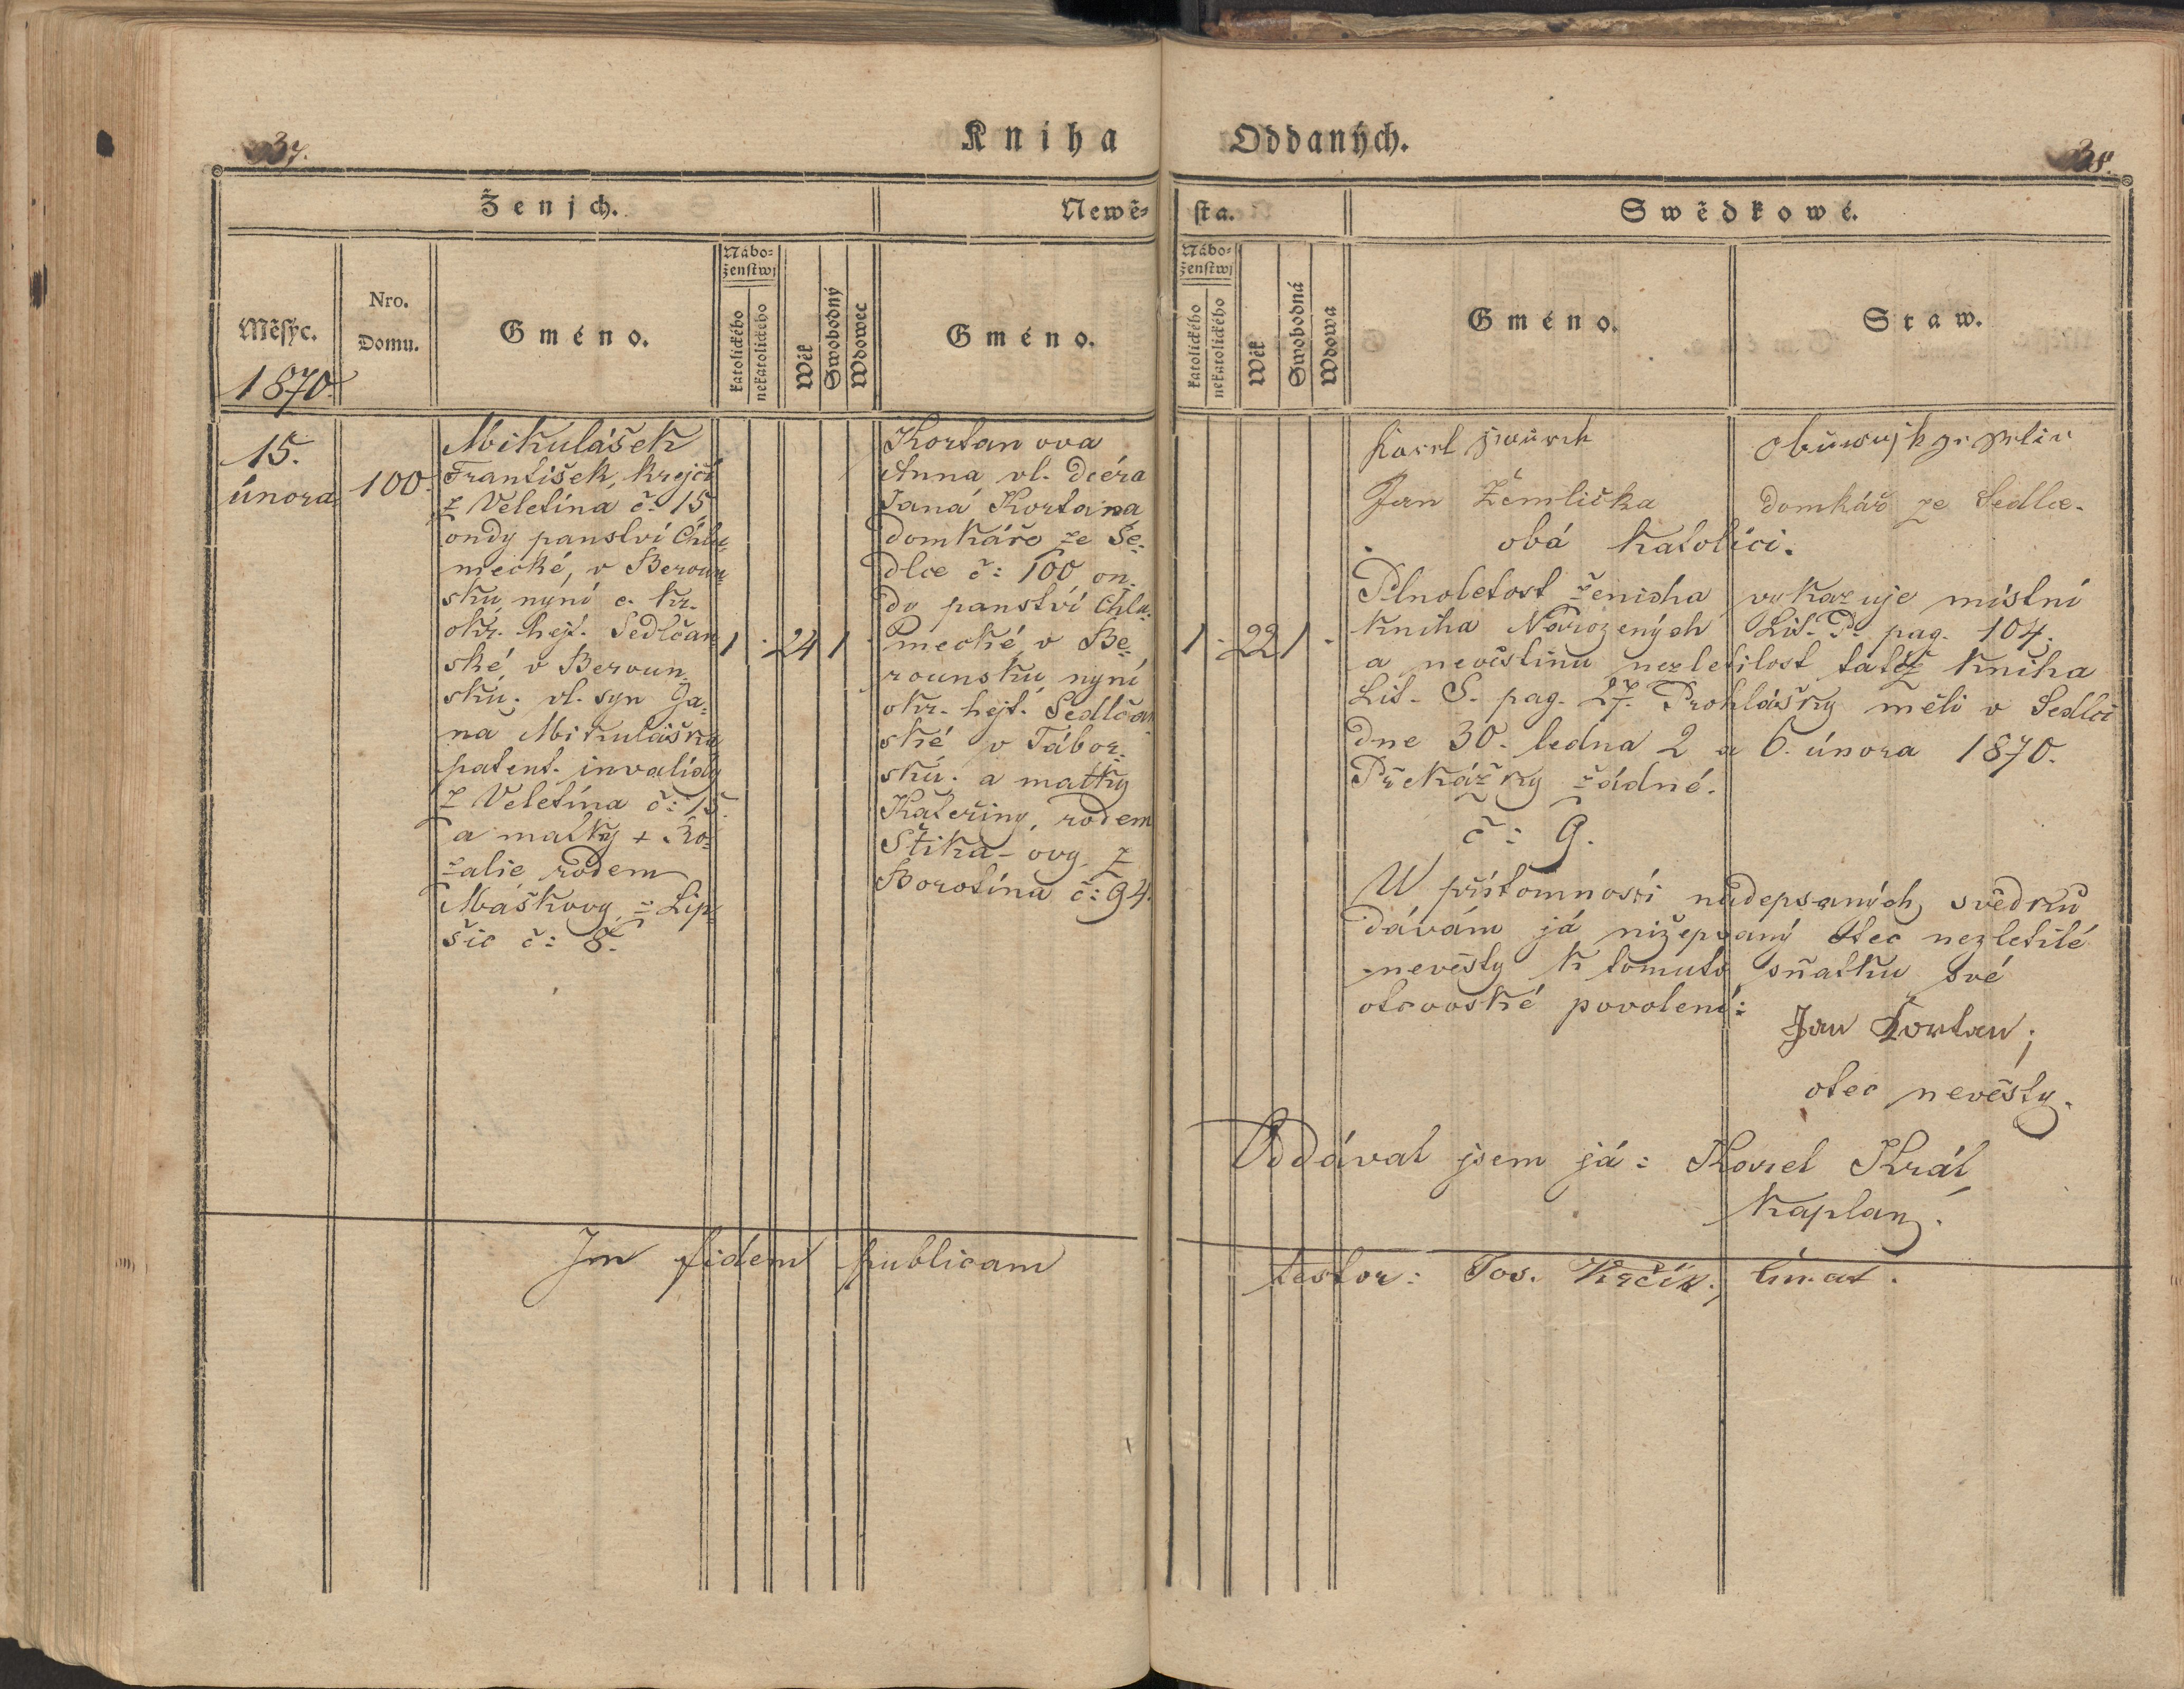 37.
Kniha Oddaných.
38.
Ženjch.
Newě-
sta.
Swědkowé.
Měsýc.
Nro.
Domu.
Gméno.
Nábo-
ženstwj
katolického
nekatolického
Wěk
Swobodný
Wdowec
Gméno.
Nábo-
ženstwj
katolického
nekatolického
Wěk
Swobodná
Wdowa
Gméno.
Staw.
1870.
15.
února
100.
Mikulášek
František, krejčí
z Veletína č: 15
ondy panství Chlu-
mecké, v Beroun-
sku nyní c. kr.
okr. hejt. Sedlčan-
ské v Beroun-
sku. vl. syn Ja-
na Mikuláška
patent. invalidy
z Veletína č: 15.
a matky + Ro-
zalie rodem
Máškovy z Lip-
šic č: 8.
1
24
1
Kortanova
Anna vl. dcéra
Jana Kortana
domkáře ze Se-
dlce č: 100 on-
dy panství Chlu-
mecké, v Be-
rounsku nyní
okr. hejt. Sedlčan-
ské v Tábor-
sku. a matky
Kateřiny, rodem
Štika-ovy z
Borotína č: 94.
1
22
1
Karel
Jan Žemlička domkář ze Sedlce.
obá katolíci.
Plnoletost ženicha vykazuje místní
kniha Narozených Lit. P. pag. 104.
a nevěstinu nezletilost tatéž kniha
Lit. S. pag. 27. Prohlášky měli v Sedlci
dne 30. ledna 2 a 6. února 1870.
Překážky žádné.
č: 9.
W přítomnosti nadepsaných svědků
dávám já nižepsaný otec nezletilé
nevěsty k tomuto sňatku své
otcovské povolení:
Jan Kortan;
otec nevěsty.
Oddával jsem já: Karel Král
kaplan.
In fidem publicam testor: Jos. Krčík,